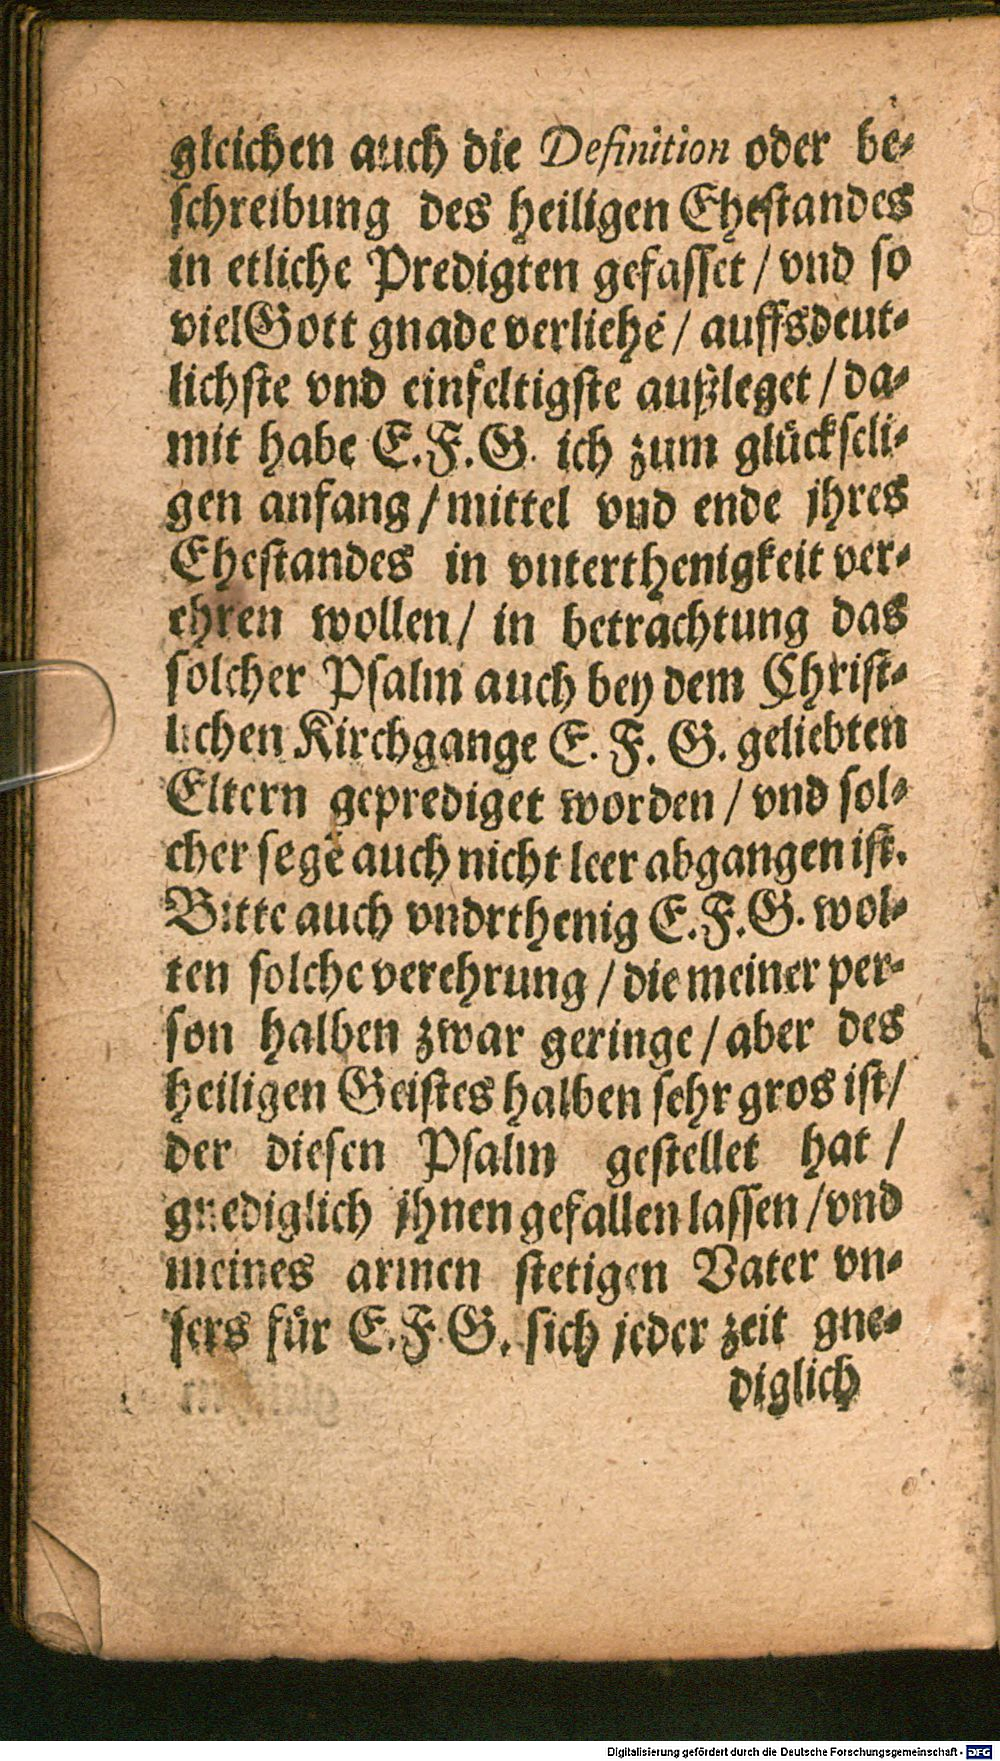 gleichen auch die Definition oder be-
schreibung des heiligen Ehestandes
in etliche Predigten gefasset / vnd so
viel Gott gnade verliehē / auffs deut-
lichste vnd einfeltigste außleget / da-
mit habe E.F.G. ich zum glückseli-
gen anfang / mittel vnd ende jhres
Ehestandes in vnterthenigkeit ver-
ehren wollen / in betrachtung das
solcher Psalm auch bey dem Christ-
lichen Kirchgange E. F. G. geliebten
Eltern geprediget worden / vnd sol-
cher segē auch nicht leer abgangen ist.
Bitte auch vndrthenig E.F.G. wol-
ten solche verehrung / die meiner per-
son halben zwar geringe / aber des
heiligen Geistes halben sehr gros ist /
der diesen Psalm gestellet hat /
gnediglich jhnen gefallen lassen / vnd
meines armen stetigen Vater vn-
sers für E.F.G. sich jeder zeit gne-
diglich
Digitalisierung gefördert durch die Deutsche Forschungsgemeinschaft - DFG